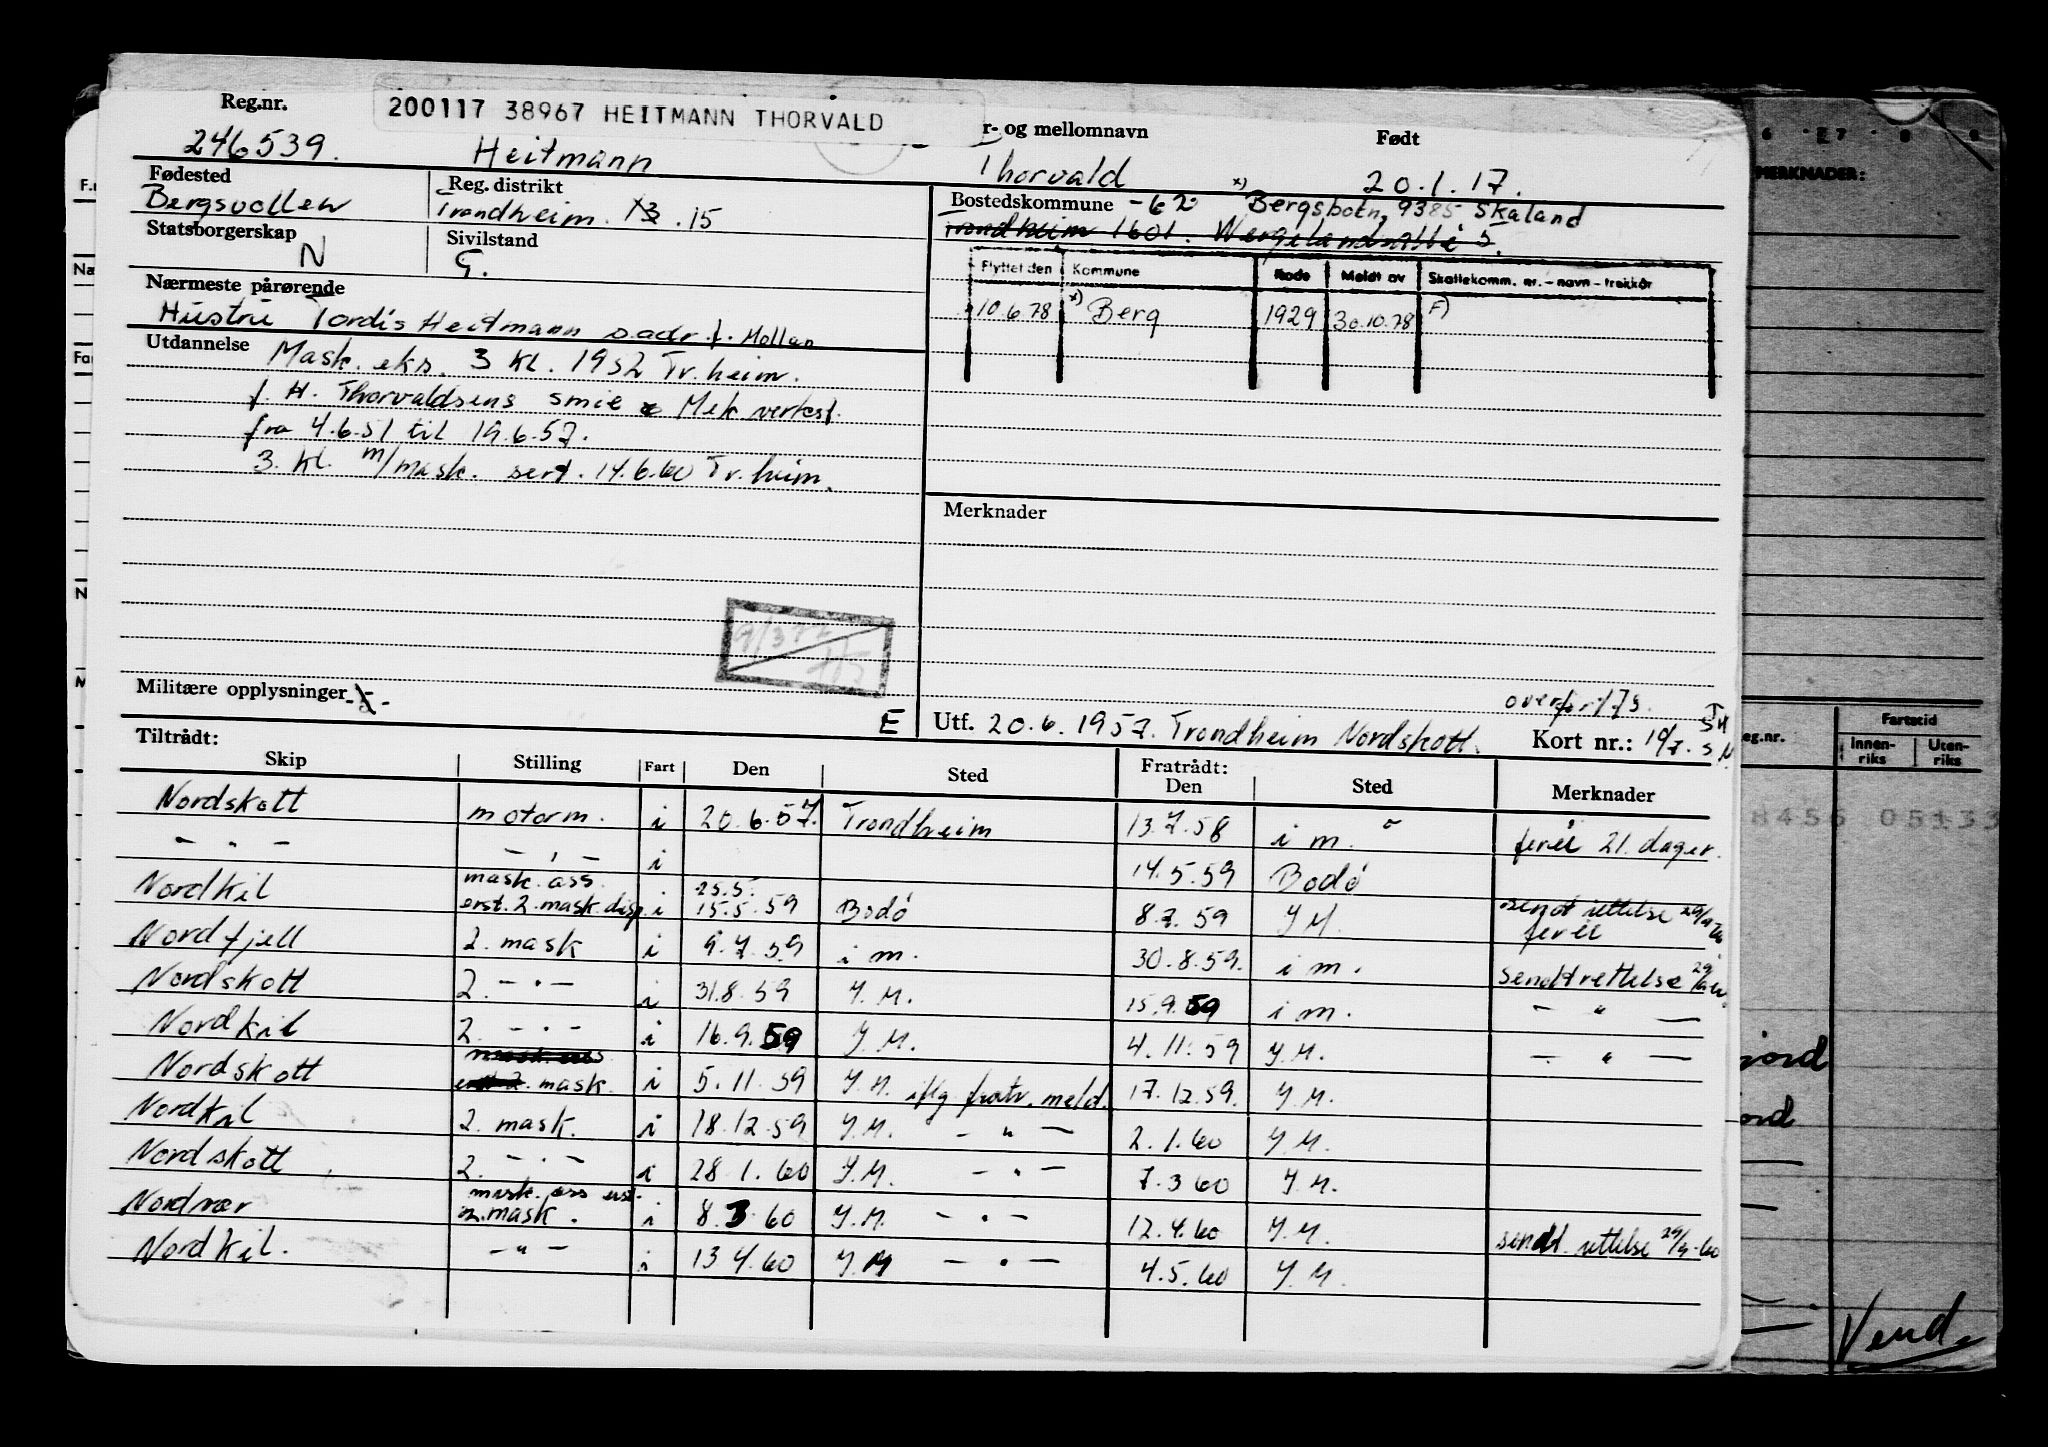 Reg.nr. 200117 38967 HEITMANN THORVALD r- og mellomnavn Født
246539. Heitmann Thorvald 20.1.17.
Fødested Reg. distrikt Bostedskommune -62 x) Bergsbotn, 9385 Skaland
Bergsvollen Trondheim. 13. 15 Trondheim 1601.
Statsborgerskap Sivilstand
N G.
Flyttet den Kommune Rode Meldt av Skattekomm. nr. - navn - trekkår
10.6.78 x) Berg 1929 30.10.78 F)
Nærmeste pårørende
Hustru Tordis Heitmann s.adr. f. Mollan
Utdannelse Mask. eks. 3 kl. 1952 Tr.heim.
f. H. Thorvaldsens smie & Mek verkst.
fra 4.6.51 til 19.6.57.
3. kl. m/mask. sert. 14.6.60 Tr.heim.
Merknader
Militære opplysninger
E Utf. 20.6.1957. Trondheim Nordskott. Kort nr.:
Tiltrådt: Fratrådt:
Skip Stilling Fart Den Sted Den Sted Merknader
Nordskott motorm. i 20.6.57. Trondheim 13.7.58 i m. ferie 21. dager.
— " — — " — i 14.5.59 Bodø
Nordkil mask. ass. erst. 2. mask. disp. i 25.5. 15.5.59 Bodø 8.7.59 I M. sendt rettelse ferie
Nordfjell 2. mask i 9.7.59 i m. 30.8.59. i m. sendt rettelse
Nordskott 2. — " — i 31.8.59 I.M. 15.9.59 i m. — " —
Nordkil 2. — " — i 16.9.59 I.M. 4.11.59 I.M. — " —
Nordskott mask. ass erst 2. mask. i 5.11.59 I.M. iflg fratr. meld. 17.12.59. I.M.
Nordkil 2. mask. i 18.12.59 I.M. — " — 2.1.60 I.M.
Nordskott 2. — " — i 28.1.60 I.M. — " — 7.3 60 I.M.
Nordvær mask. ass erst. 2. mask. i 8.3.60 I.M. — " — 12.4.60 I.M. sendt rettelse
Nordkil. — " — i 13 4.60 I.M — " — 4.5.60 I.M.
MERKNADER:
Fartstid
eg.nr. Innen-riks Uten-riks
8456 05133
jord
ord
Vend